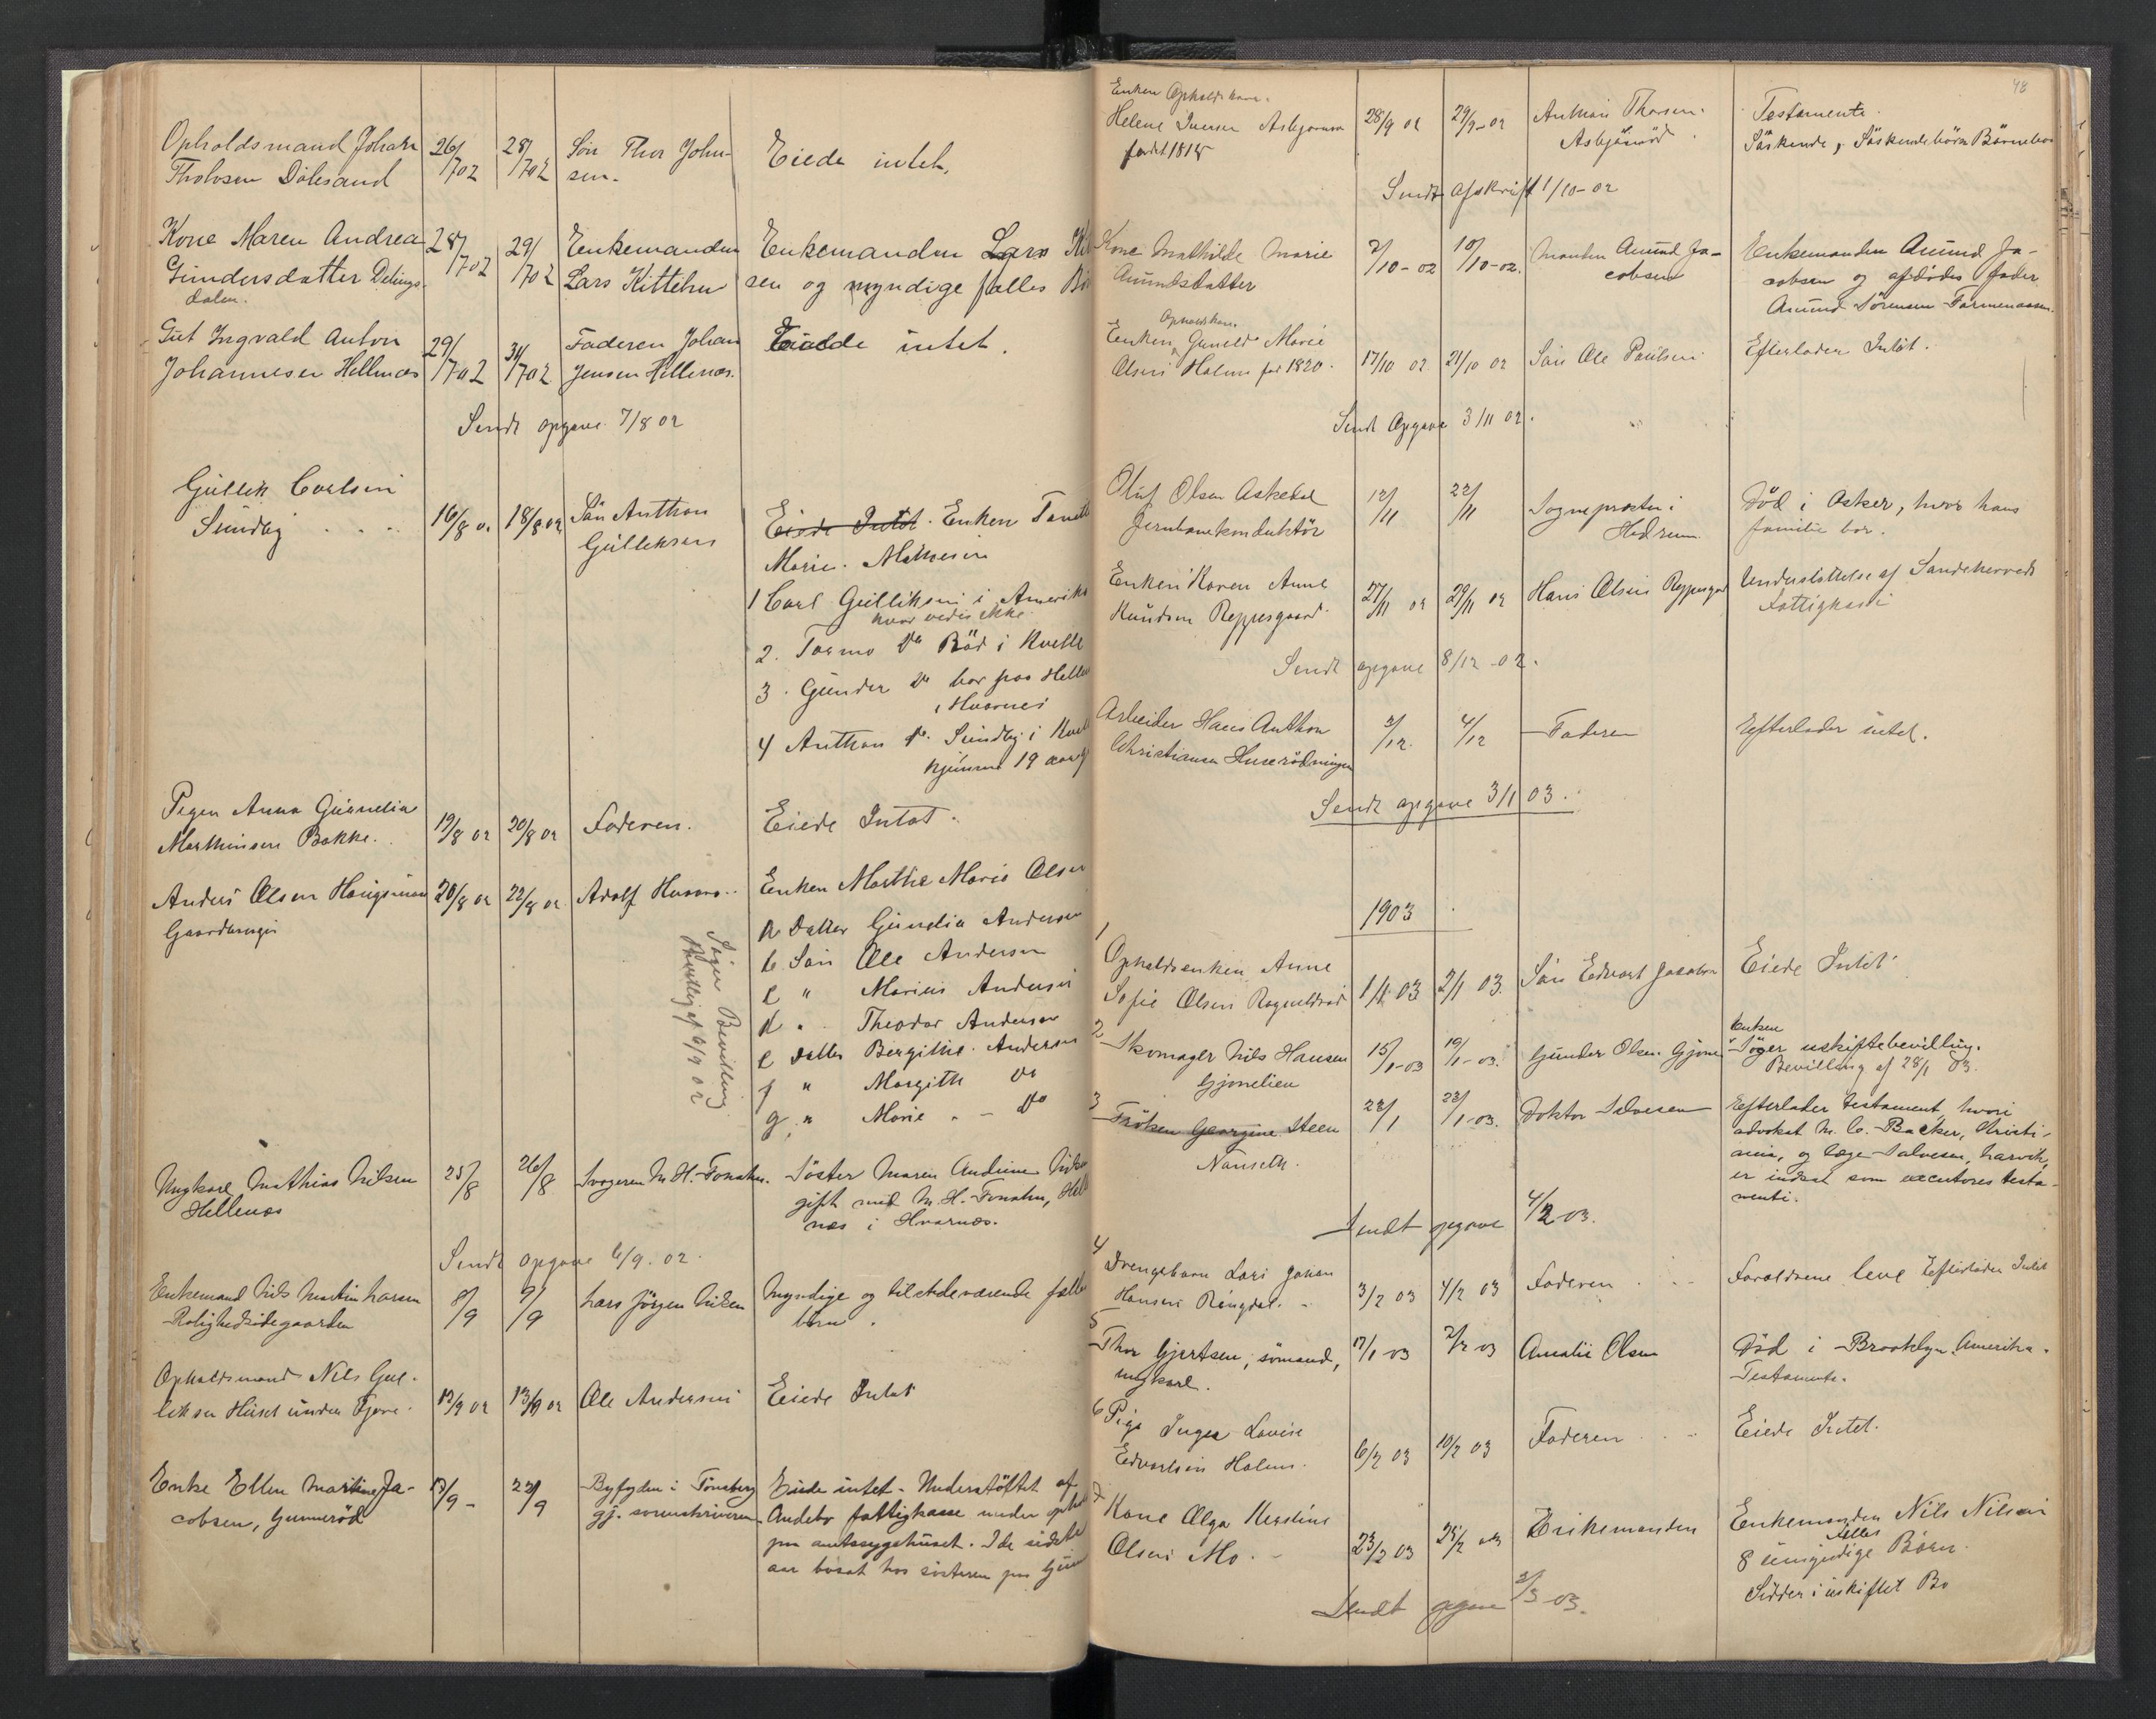 Opholdsmand Johan 26/7 02 28/7 02 Søn Thor John- Eiede intet.
Tholvsen Dølesand sen.
Kone Maren Andrea 28/7 02 29/7 02 Enkemanden Enkemanden Lars
Gundersdatter Delings- Lars Kittilsen sen og myndige fælles
dalen.
Gut Ingvald Anton 29/7 02 31/7 02 Faderen Johan Eiede intet.
Johannesen Hellenæs Jensen Hellenæs.
Sendt opgave 7/8 02
Gullik Carlsen
Sundby 16/8 02 18/8 02 Søn Anthon Eiede Intet. Enken
Gulliksen Marie Mathesen
1 Carl Gulliksen i Amerika
hvor vides ikke
2. Tormo Do Röd i Kvelle
3. Gunder Do bor paa
i Hvarnes
4 Anthon Do Sundby i
hjemme 19 aar
Pigen Anna Gurnelia
Marthinsen Bakke. 19/8 02 20/8 02 Faderen. Eiede Intet.
Anders Olsen Haugsnæs 20/8 02 22/8 02 Adolf Hvaara Enken Marthe Marie Olsen
Gaardbruger
a Datter Gunelia Andersen
b Søn Ole Andersen
c " Marius Andersen
d " Theodor Andersen
e Datter Bergithe Andersen
f " Margith Do
g " Marie " Do
Søger Bevilling
Bevillig af 6/9 02
Ungkarl Mathias Nilsen 25/8 26/8 Svogeren M. H. Fonahn. Söster Maren Andrine
Hellenæs gift med M. H. Fonahn,
næs i Hvarnæs.
Sendt opgave 6/9. 02.
Enkemand Nils Martin Larsen 8/9 9/9 Lars Jörgen Nilsen Myndige og tilstedeværende
Rolighedsödegaarden börn.
Opholdsmand Nils Gul-
liksen Huset under Fjære. 12/9 02 13/9 02 Ole Andersen Eiede Intet
Enke Ellen Martine Ja- 13/9 - 22/9 Byfogden i Tönsberg Eiede intet - Understöttet af
cobsen, Gunneröd gj. sorenskriveren. Andebu fattigkasse under
paa amtssygehuset. I de sidste
aar bosat hos søsteren paa
48
Enken Opholdskone
Helene Iversen Asbjørnrød 28/9 02 29/9-02 Anthon Thorsen Testamente.
født 1818 Asbjønrød Söskende, Söskendebörn Börnebørn
Sendt afskrift 1/10-02
Kone Mathilde Marie 2/10-02 10/10-02. Manden Amund Ja- Enkemanden Amund Ja-
Amundsdatter cobsen cobsen og afdødes fader
Amund Sörensen
Opholdskone
Enken Gunild Marie
Olsen Holm fød 1820. 17/10 02 21/10 02 Søn Ole Paulsen Efterlader Intet.
Sendt Opgave 3/11 02.
Oluf Olsen Askedal 12/11 22/11 Sogneprosten i Död i Asker, hvor hans
Jernbanekonduktör Hedrum. familie bor.
Enken Karen Anne 27/11 02 29/11 02 Hans Olsen Reppesgaard Understöttelse af Sandeherreds
Knudsen Reppesgaard. Fattigkasse
Sendt opgave 8/12-02.
Arbeider Hans Anthon 3/12. 4/12 Faderen Efterlader intet.
Christiansen Huserödningen
Sendt opgave 3/1 03.
1903
1
Opholdsenken Anne
Sofie Olsen Ragnildrød 1/1 03 2/1 03 Søn Edvart Jacobsen Eiede Intet
2 Skomager Nils Hansen 15/1-03 19/1-03. Gunder Olsen Gjone Enken Søger uskiftebevilling.
Gjonelien Bevilling af 28/1 03.
3 Fröken Georgine Steen 22/1 23/1-03. Doktor Salvesen Efterlader testament, hvori
Nanseth. advokat M. C. Backer, Christi-
ania, og læge Salvesen, Larvik,
er indsat som executores testa-
menti.
Sendt opgave 4/2 03.
4
Drengebarn Lars Johan
Hansen Ringdal. 3/2 03 4/2 03 Faderen Forældrene leve Efterlader Intet
5
Thor Gjertsen, sömand, 17/1 03 2/2 03 Amalie Olsen Död i Brooklyn Amerika.
ungkarl. Testamente.
6 Pige Inga Lovise
Edvartsen Holm. 6/2 03 10/2 03 Faderen Eiede Intet.
7
Kone Olga Kerstine
Olsen Mo. 23/2 03 25/2 03 Enkemanden Enkemanden Nils Nilsen
8 fælles umyndige Börn.
Sidder i uskiftet Bo
Sendt opgave 2/3 03.